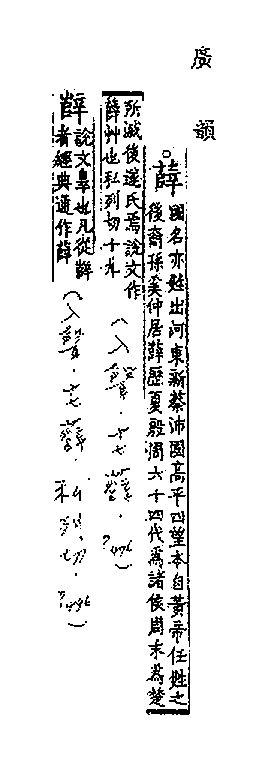 廣韻
薛 國名亦姓出河東新蔡沛國高平四望本自黃帝任姓之
後裔孫奚仲居薛歷夏殷周六十四代為諸侯周末為楚
所滅後遂氏焉說文作
薛艸也私列切十九
(入聲.十七薛.P.496)
辥 說文辠也凡從辥
者經典通作薛
(入聲.十七薛.私列切.P.496)